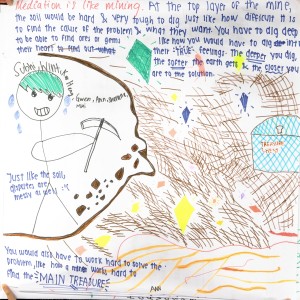 Mediation is like mining. At the top layer of the mine,
the soil would be hard & very tough to dig just like how difficult it is
to find the cause of the problem & what they want. You have to dig deep
to be able to find ares of gems like how you would have to dig into
their heart to find out what their "TRUE" feelings. The deeper you dig,
the softer the earth gets & the closer you
are to the solution.
TREASURE
Just like the soil,
disputes are
messy as well
You would also have to work hard to solve the
problem, like how a miner works hard to
find the MAIN TREASURE